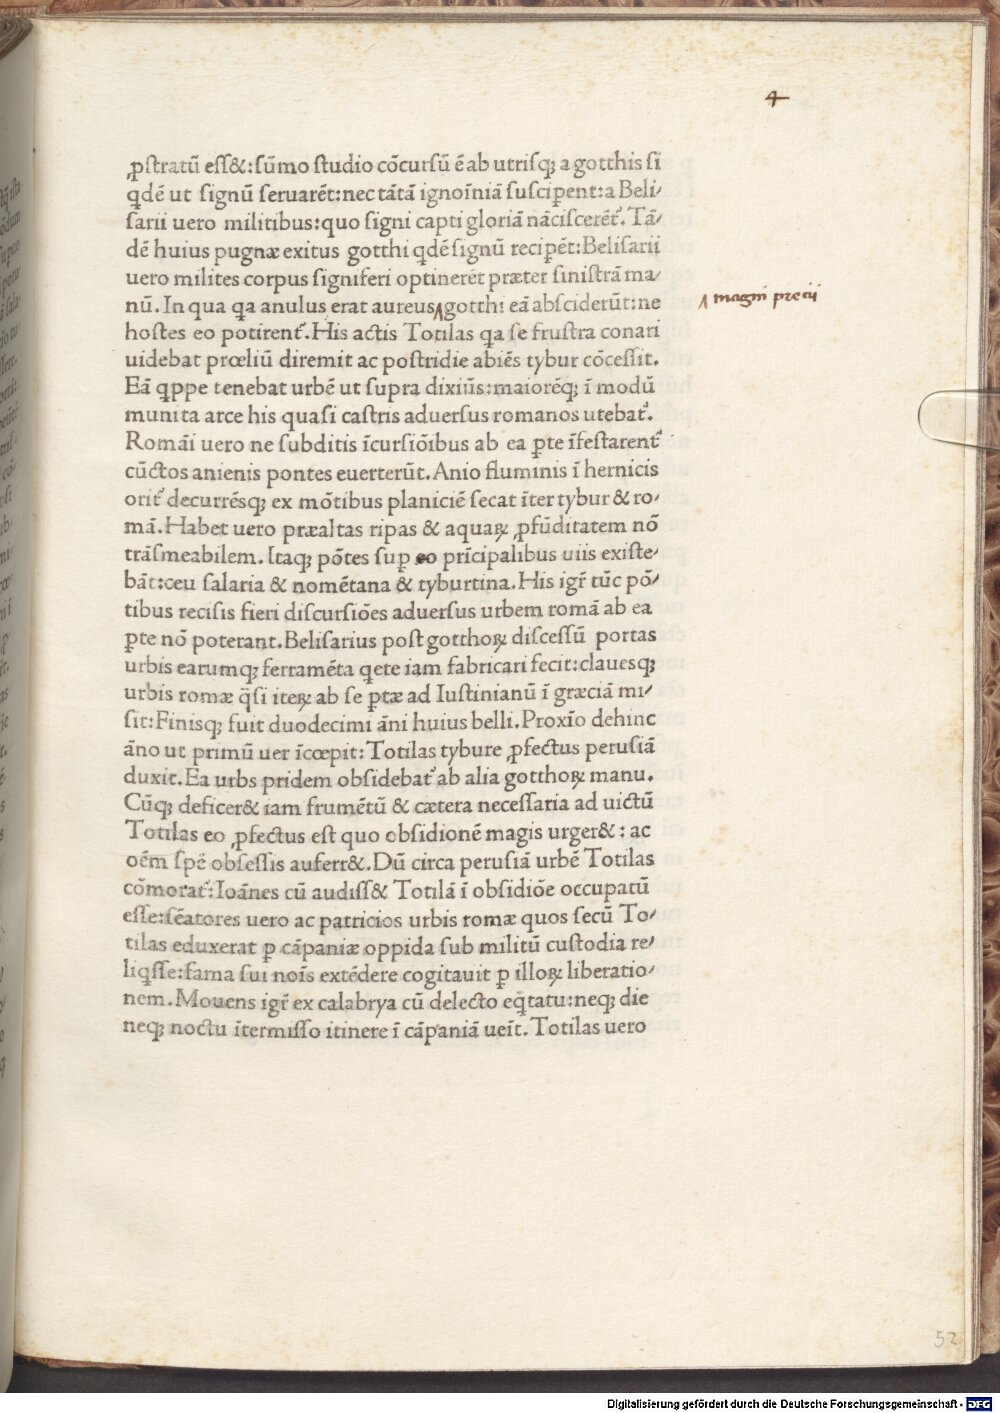 4
ꝓstratū ess&:sūmo studio cōcursū ē ab utrisqꝫ a gotthis si
qdē ut signū seruarēt:nec tātā ignoīniā suscipent:a Beli/
sarii uero militibus:quo signi capti gloriā nāciscerēt᷑. Tā/
dē huius pugnæ exitus gotthi qdē signū recipēt:Belisarii
uero milites corpus signiferi optinerēt præter sinistrā ma/
nū. In qua qa anulus erat aureus‸gotthi eā absciderūt:ne
‸ magni precii
hostes eo potirent᷑. His actis Totilas qa se frustra conari
uidebat prœliū diremit ac postridie abiēs tybur cōcessit.
Eā qppe tenebat urbē ut supra dixiūs:maiorēqꝫ ī modū
munita arce his quasi castris aduersus romanos utebat᷑.
Romāi uero ne subditis īcursiōibus ab ea ꝑte īfestarent᷑
cūctos anienis pontes euerterūt. Anio fluminis ī hernicis
orit᷑ decurrēsqꝫ ex mōtibus planiciē secat īter tybur & ro/
mā. Habet uero præaltas ripas & aquaꝝ ꝓfūditatem nō
trāsmeabilem. Itaqꝫ pōtes sup eo prīcipalibus uiis existe/
bāt:ceu salaria & nomētana & tyburtina. His igr̄ tūc pō/
tibus recisis fieri discursiōes aduersus urbem romā ab ea
ꝑte nō poterant. Belisarius post gotthoꝝ discessū portas
urbis earumqꝫ ferramēta qete iam fabricari fecit:clauesqꝫ
urbis romæ q̄si iteꝝ ab se ꝑtæ ad Iustinianū ī græciā mi/
sit:Finisqꝫ fuit duodecimi āni huius belli. Proxīo dehinc
āno ut primū uer īcœpit: Totilas tybure ꝓfectus perusiā
duxit. Ea urbs pridem obsidebat᷑ ab alia gotthoꝝ manu.
Cūqꝫ deficer& iam frumētū & cætera necessaria ad uictū
Totilas eo ꝓfectus est quo obsidionē magis urger&: ac
oēm spē obsessis auferr&. Dū circa perusiā urbē Totilas
cōmorat᷑:Ioānes cū audiss& Totilā ī obsidiōe occupatū
esse:sēatores uero ac patricios urbis romæ quos secū To/
tilas eduxerat ꝑ cāpaniæ oppida sub militū custodia re/
liqsse:fama sui nois̄ extēdere cogitauit ꝑ illoꝝ liberatio/
nem. Mouens igr̄ ex calabrya cū delecto eq̄tatu:neqꝫ die
neqꝫ noctu ītermisso itinere ī cāpaniā ueīt. Totilas uero
52
Digitalisierung gefördert durch die Deutsche Forschungsgemeinschaft - DFG